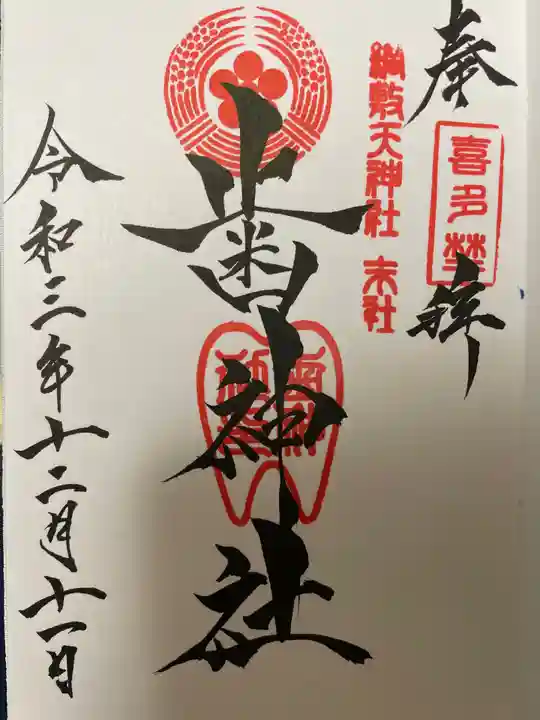 奉拝
喜多埜
綱敷天神社 末社
歯神社
歯神社
令和三年十二月十一日